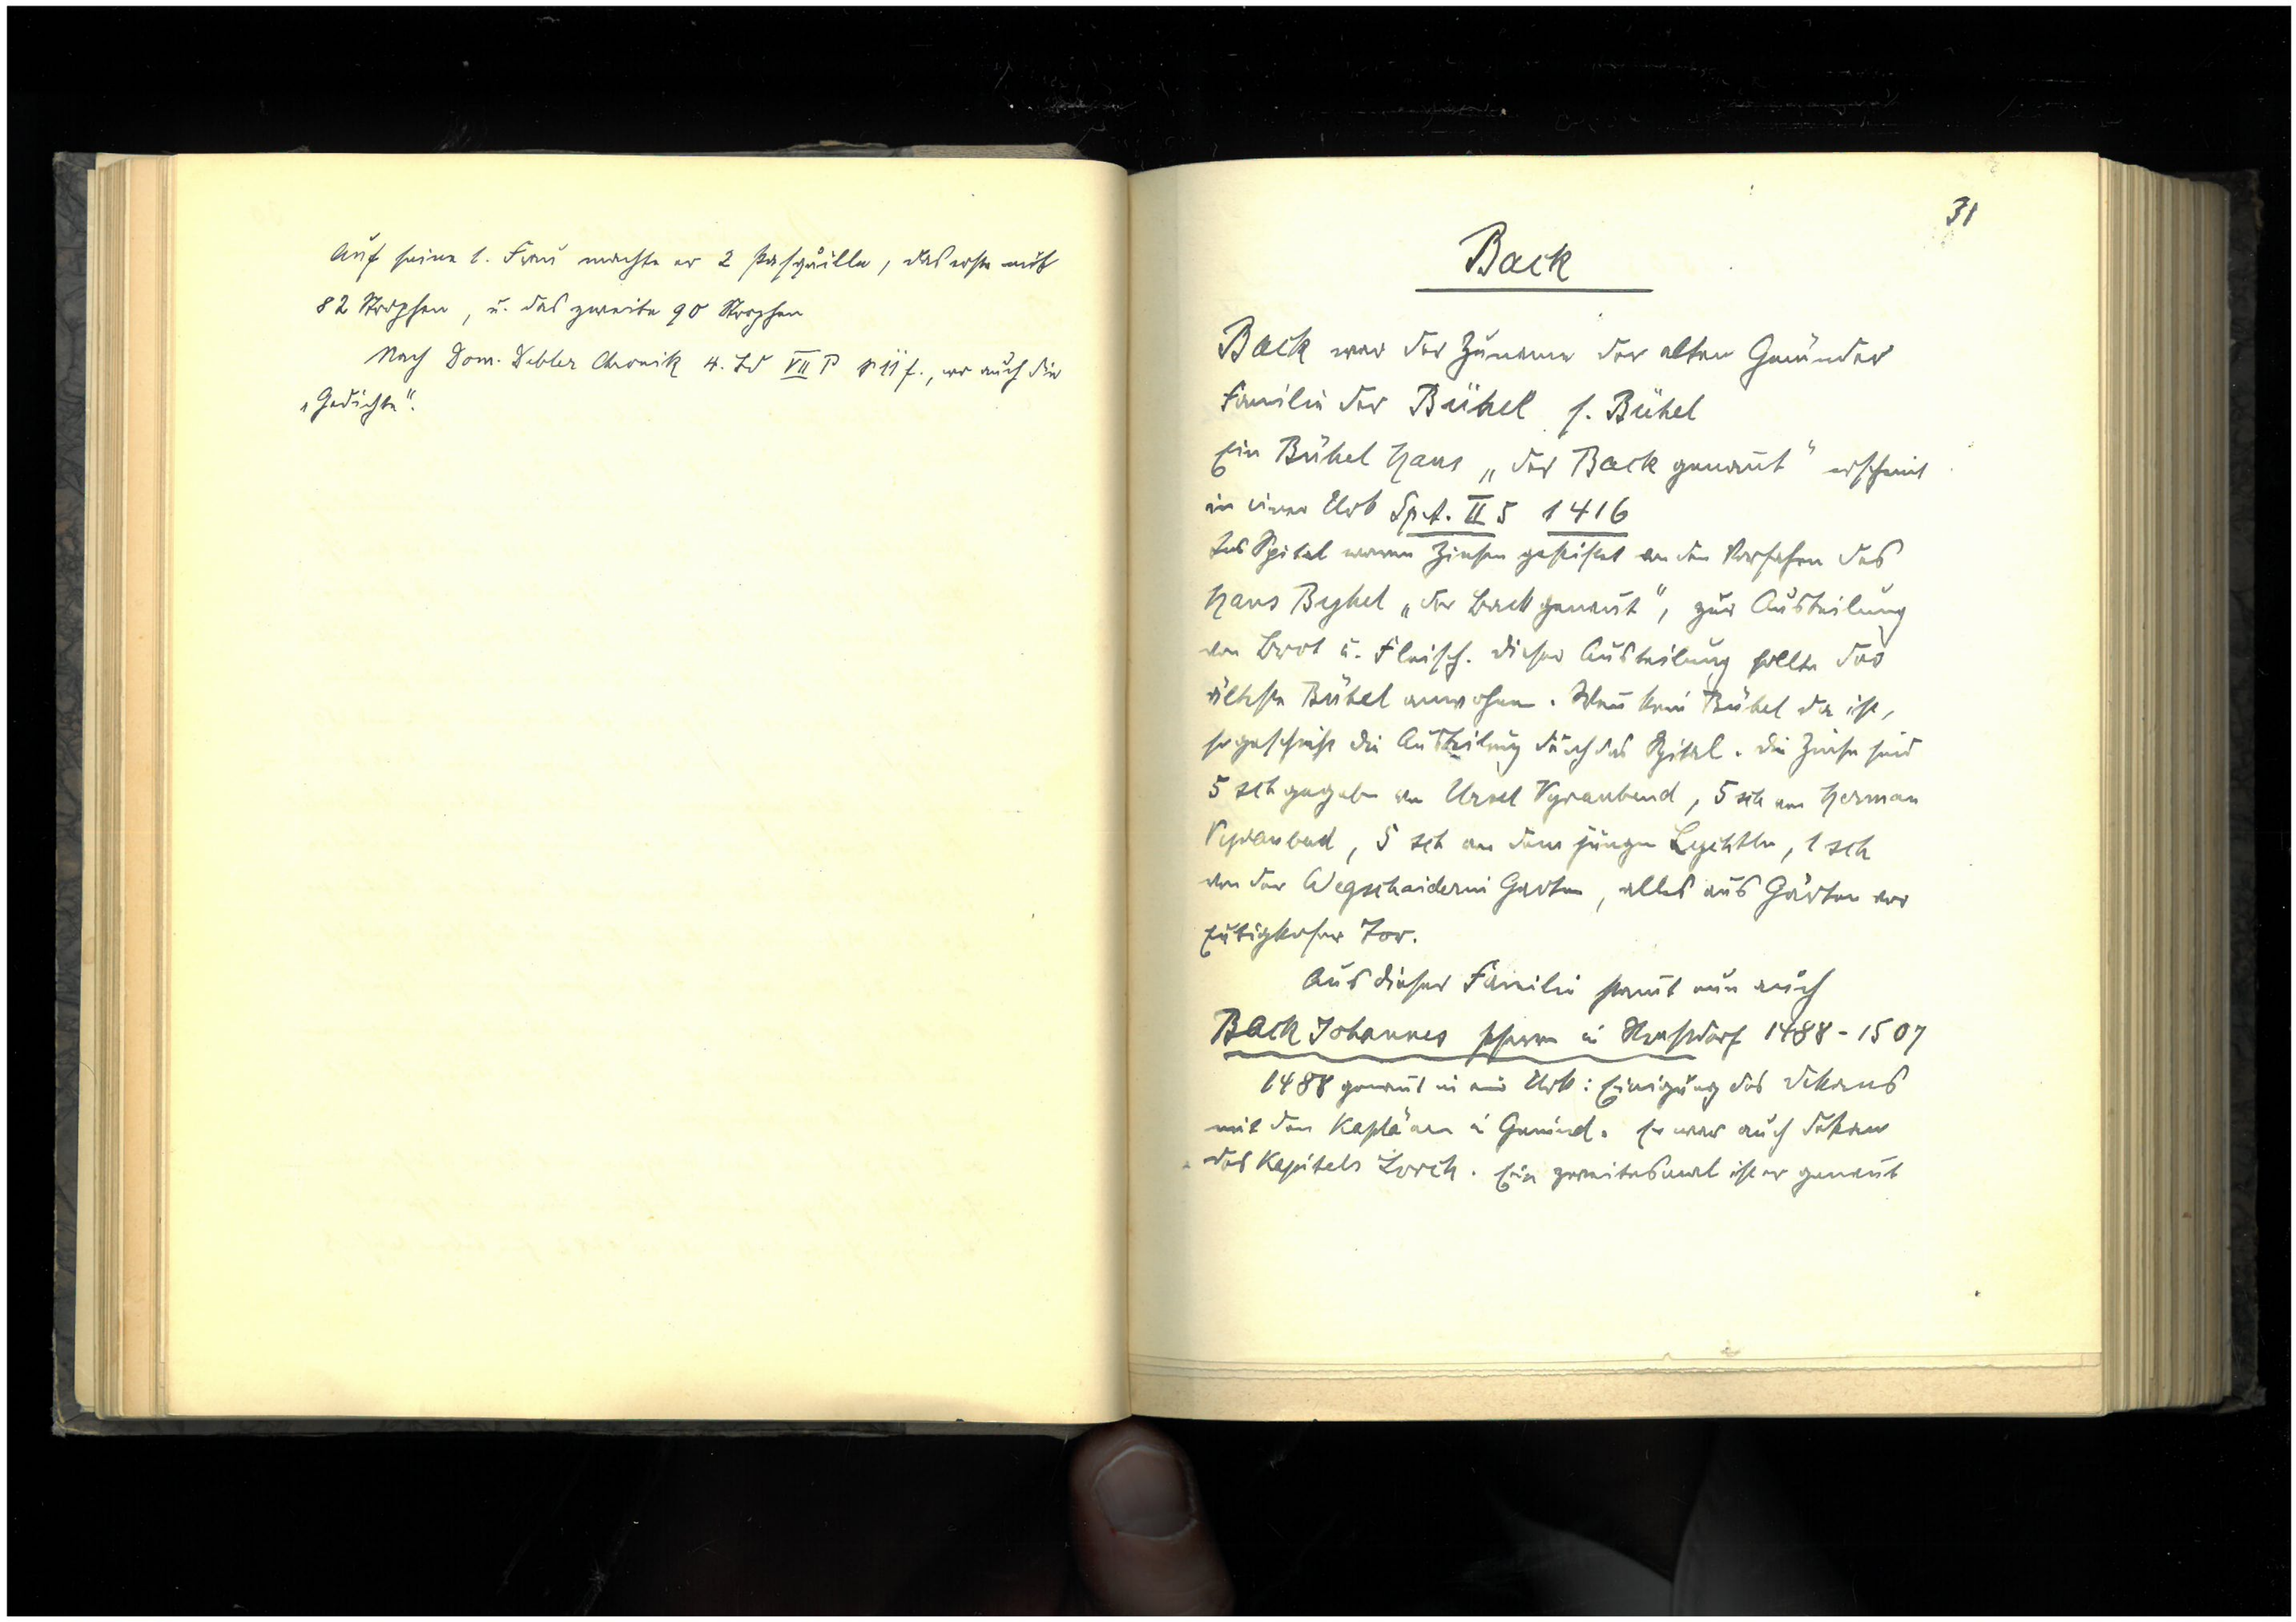 Auf seine 1. Frau machte er 2 Pasquille, das erste mit
82 Strophen, u. das zweite 90 Strophen
Nach Dom. Debler Chronik 4. Bd VII P p 11 f., wo auch die
„Gedichte“.
31
Back
Back war der Zuname der alten Gmünder
Familie der Bühel s. Bühel
Ein Bühel Hans „der Back genant“ erscheint
in einer Urk Sp. A. II 5 1416
Ins Spital waren Zinsen gestiftet von den Vorfahren des
Hans Byhel „der Back genant“, zur Austeilung
von Brot u. Fleisch. Dieser Austeilung sollte der
älteste Bühel anwohnen. Wen kein Bühel da ist,
so geschieht die Austeilung durch das Spital. Die Zinse sind
5 sch gegeben von Ursel Vyraubend, 5 sch von Herman
Vyraubend, 5 sch von dem jungen Lychtlin, 1 sch
von der Wegscheiderin Garten, alles aus Gärten vor
Eutighofer Tor.
Aus dieser Familie stamt nun auch
Back Johannes Pfarrer in 1488 - 1507
1488 genant in einer Urk: Einigung des Dekans
mit den Kaplänen in Gmünd. Er war auch Dekan
des Kapitels Lorch. Ein zweitesmal ist er genant